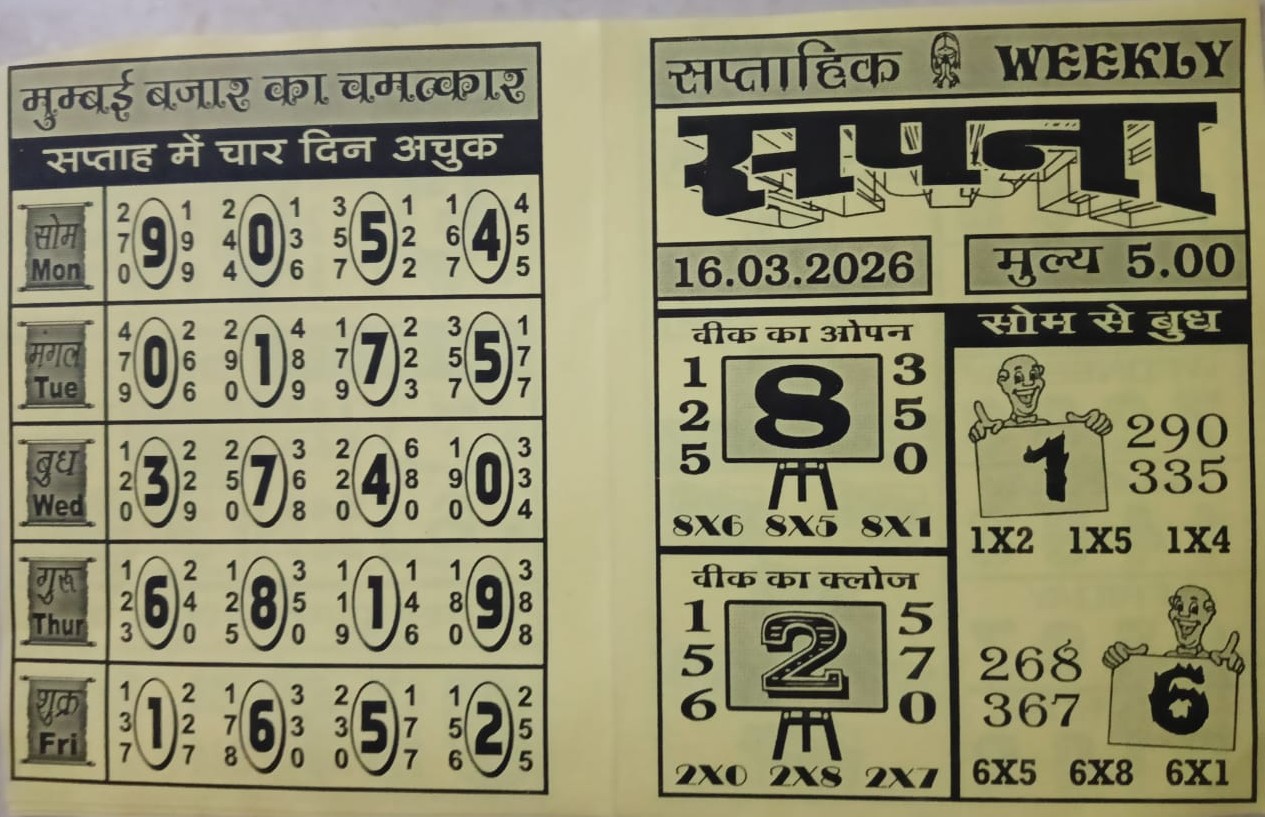 मुम्बई बजार का चमत्कार
सप्ताह में चार दिन अचुक
सोम
Mon
2 1 2 1 3 1 1 4
7 9 9 4 0 3 5 5 2 6 4 5
0 9 4 6 7 2 7 5
मगल
Tue
4 2 2 4 1 2 3 1
7 0 6 9 1 8 7 7 2 5 5 7
9 6 0 9 9 3 7 7
बुध
Wed
1 2 2 3 2 6 1 3
2 3 2 5 7 6 2 4 8 9 0 3
0 9 0 8 0 0 0 4
गुरू
Thur
1 2 1 3 1 1 1 3
2 6 4 2 8 5 1 1 4 8 9 8
3 0 5 0 9 6 0 8
शुक्र
Fri
1 2 1 3 2 1 1 2
3 1 2 7 6 3 3 5 7 5 2 5
7 7 8 0 0 7 6 5
सप्ताहिक WEEKLY
सपना
16.03.2026 मुल्य 5.00
वीक का ओपन
1 3
2 8 5
5 0
8X6 8X5 8X1
वीक का क्लोज
1 5
5 2 7
6 0
2X0 2X8 2X7
सोम से बुध
1
290
335
1X2 1X5 1X4
268
367
6
6X5 6X8 6X1